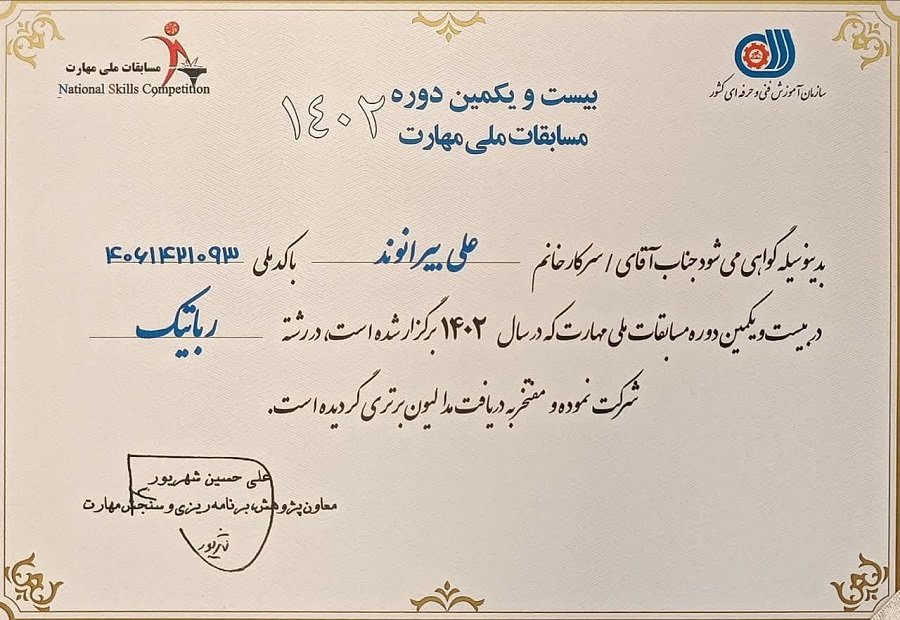 مسابقات ملی مهارت
National Skills Competition
سازمان آموزش فنی و حرفه‌ای کشور
بیست و یکمین دوره
مسابقات ملی مهارت
۱۴۰۲
بدینوسیله گواهی می شود جناب آقای / سرکار خانم علی بیرانوند با کد ملی ۴۰۶۱۴۲۱۰۹۳
در بیست و یکمین دوره مسابقات ملی مهارت که در سال ۱۴۰۲ برگزار شده است، در رشته رباتیک
شرکت نموده و مفتخر به دریافت مدالیون برتری گردیده است.
علی حسین شهریور
معاون پژوهش، برنامه ریزی و سنجش مهارت